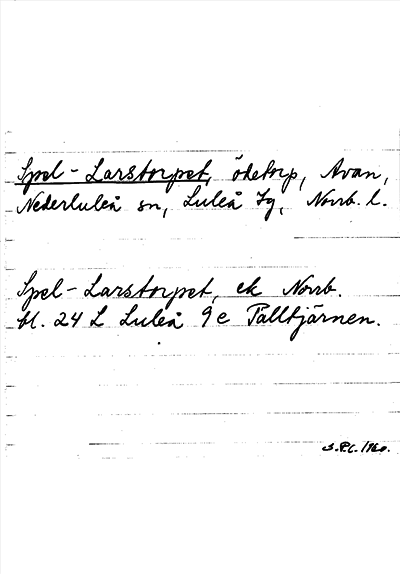 Spel-Larstorpet, ödetorp, Avan,
Nederluleå sn, Luleå tg, Norrb. l.
Spel-Larstorpet, ek Norrb.
bl. 24 L Luleå 9e Talltjärnen.
1960.